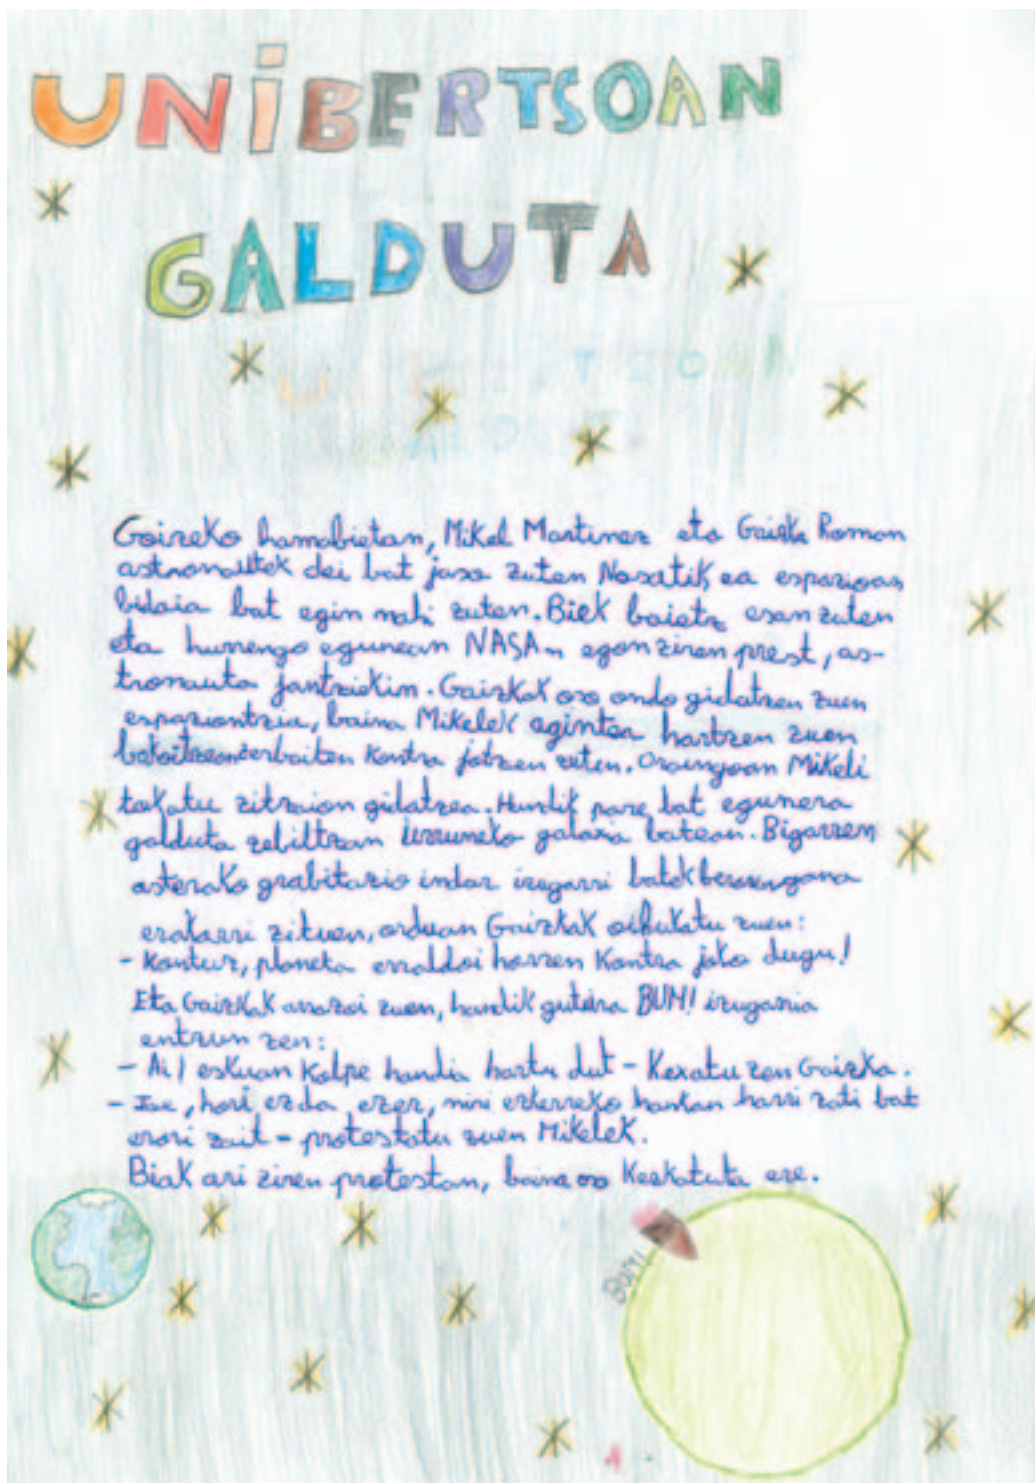 UNIBERTSOAN
GALDUTA
Goizeko hamabietan, Mikel Martinez eta Gaizka Roman
astronautek dei bat jaso zuten Nasatik ea espazioan
bidaia bat egin nahi zuten. Biek baietz esan zuten
eta hurrengo egunean NASAn egon ziren prest, as-
tronauta jantziekin. Gaizkak oso ondo gidatzen zuen
espaziontzia, baina Mikelek agintea hartzen zuen
bakoitzean zerbaiten kontra jotzen zuten. Oraingoan Mikeli
tokatu zitzaion gidatzea. Handik pare bat egunera
galduta zebiltzan urruneko galaxia batean. Bigarren
asterako grabitazio indar izugarri batek berarengana
eratarri zituen, orduan Gaizkak oihukatu zuen:
- Kontuz, planeta erraldoi horren kontra joko dugu!
Eta Gaizkak arrazoi zuen, handik gutxira BUM! izugarria
entzun zen:
- Ai! eskuan kolpe handia hartu dut - Kexatu zen Gaizka.
- hori ez da ezer, niri ezkerreko hankan harri zati bat
erori zait - protestatu zuen Mikelek.
Biak ari ziren protestan, baina oso kezkatuta ere.
BUM!